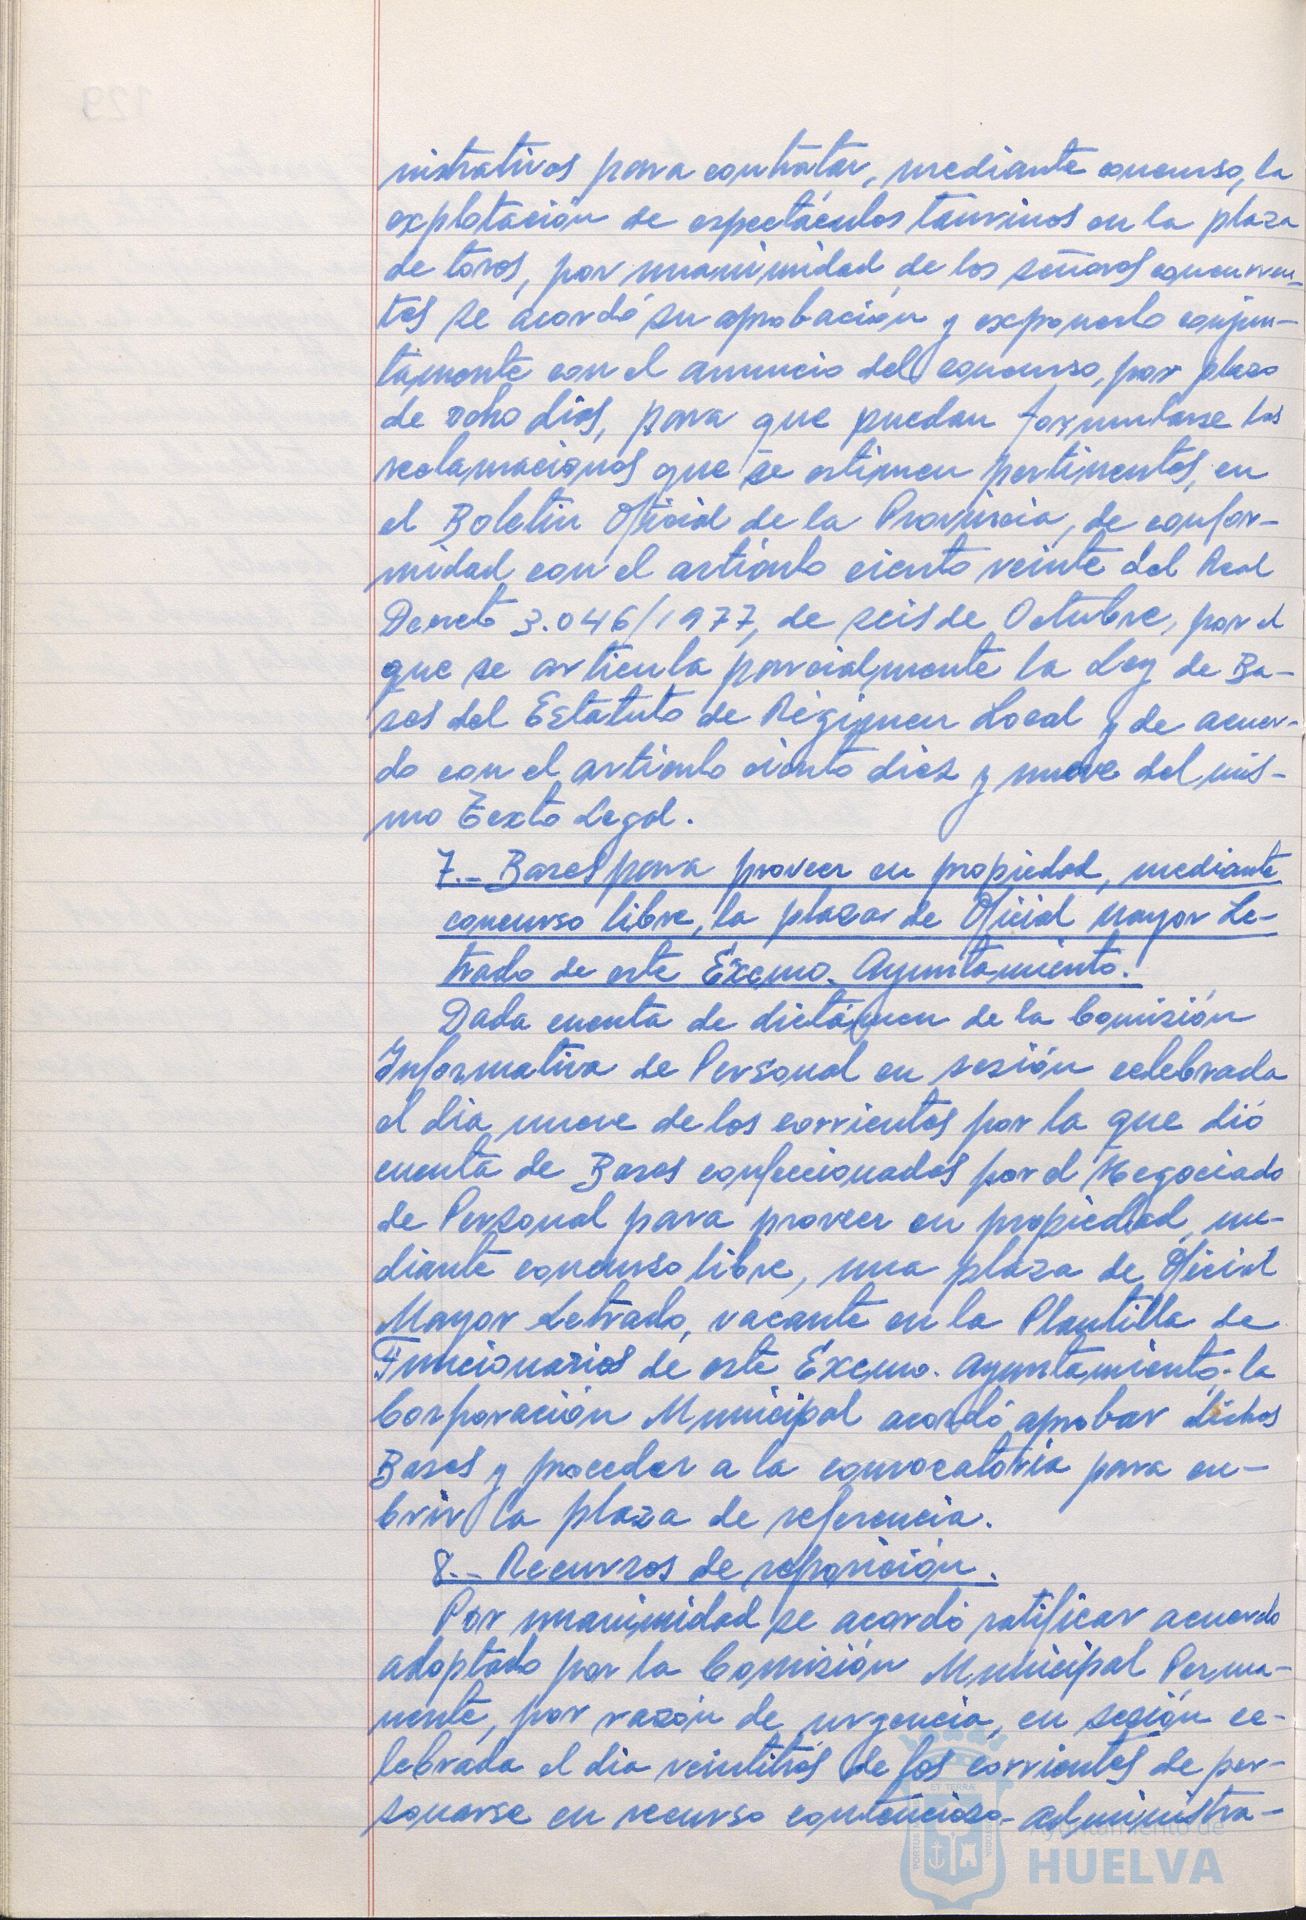 nistrativos para contratar, mediante concurso, la
explotación de espectáculos taurinos en la plaza
de toros, por unanimidad de los señores concurren-
tes se acordó su aprobación y exponerlo conjun-
tamente con el anuncio del concurso, por plazo
de ocho días, para que puedan formularse las
reclamaciones que se estimen pertinentes, en
el Boletin Oficial de la Provincia, de confor-
midad con el artículo ciento veinte del Real
Decreto 3.046/1977, de seis de Octubre, por el
que se articula parcialmente la Ley de Ba-
ses del Estatuto de Régimen Local y de acuer-
do con el artículo ciento diez y nueve del mis-
mo Texto Legal.
7.- Bases para proveer en propiedad, mediante
concurso libre, la plaza de Oficial Mayor Le-
trado de este Excmo. Ayuntamiento.
Dada cuenta de dictámen de la Comisión
Informativa de Personal en sesión celebrada
el dia nueve de los corrientes por la que dió
cuenta de Bases confeccionadas por el Negociado
de Personal para proveer en propiedad, me-
diante concurso libre, una plaza de Oficial
Mayor Letrado, vacante en la Plantilla de
Funcionarios de este Excmo. Ayuntamiento, la
Corporación Municipal acordó aprobar dichas
Bases y proceder a la convocatoria para cu-
brir la plaza de referencia.
8.- Recursos de reposición.
Por unanimidad se acordó ratificar acuerdo
adoptado por la Comisión Municipal Perma-
nente, por razón de urgencia, en sesión ce-
lebrada el dia veintitrés de los corrientes de per-
sonarse en recurso contencioso-administra-
Ayuntamiento de
HUELVA